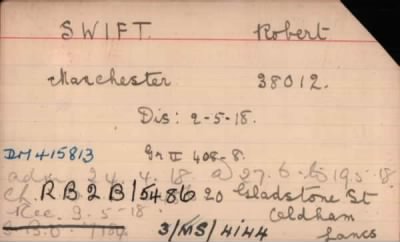 SWIFT. Robert
Manchester 38012.
Dis: 2-5-18.
DM 415813 Gr II 408-8.
adm. 24.4.18. a) 27.6. 19.5.18
Ch. RB2B/15486 20 Gladstone St
Rec. 3-5-18. Oldham
3/MS/4144 Lancs